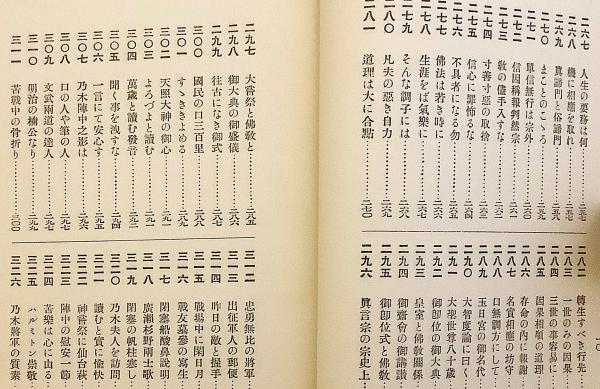 二六七 人生の要務は何………二五七
二六八 機に相應を取れ………二五八
二六九 眞諦門と俗諦門………二五八
二七〇 まことのこゝろ………二五九
二七一 單信無行は宗外………二六〇
二七二 信因稱報判然宗………二六一
二七三 敎の儘手入すな………二六二
二七四 寸善寸惡の取捨………二六三
二七五 信心に罪怖るな………二六四
二七六 不具者になる勿………二六五
二七七 佛法は若き時に………二六六
二七八 生涯をば氣樂に………二六七
二七九 そんな調子には………二六八
二八〇 凡夫の惡き自力………二六九
二八一 道理は大に合點………二七〇
二八二 轉生すべき行先
二八三 一世のみの因果
二八四 三世の事容易に
二八五 因果相順の道理
二八六 存命の內に報謝
二八七 名實相應の坊守
二八八 口無調方にして
二八九 玉日宮の御名代
二九〇 大智度論に曰く
二九一 大聖世尊八十歲
二九二 御卽位の御大典
二九三 皇室と佛敎關係
二九四 御齋會の御講讚
二九五 御卽位式と佛敎
二九六 眞言宗の宗史上
二九七 大嘗祭と佛敎と………二八五
二九八 御大典の御盛儀………二八六
二九九 往古になき御式………二八七
三〇〇 國民の口三百里………二八八
三〇一 すゝききよめる………二八九
三〇二 天照大神の御心………二九〇
三〇三 よろづよと讀む………二九一
三〇四 萬歲と讀む發音………二九二
三〇五 聞く事を洩すな………二九四
三〇六 一言にて安心す………二九五
三〇七 乃木陣中之影は………二九六
三〇八 口の人や筆の人………二九七
三〇九 文武兩道の達人………二九七
三一〇 明治の楠公なり………二九九
三一一 苦戰中の骨折り………三〇〇
三一二 忠勇無比の將軍
三一三 出征軍人の郵便
三一四 昨日の敵と握手
三一五 戰場中に閑日月
三一六 戰友墓參の寫生
三一七 閉塞船酸鼻說明
三一八 廣瀨杉野兩士歌
三一九 閉塞の帆柱寒し
三二〇 乃木夫人を訪問
三二一 讀むと實に愉快
三二二 神嘗祭に仙台萩
三二三 陣中の慰安一節
三二四 苦樂は心に由る
三二五 ハルミトン崇敬
三二六 乃木將軍の質素